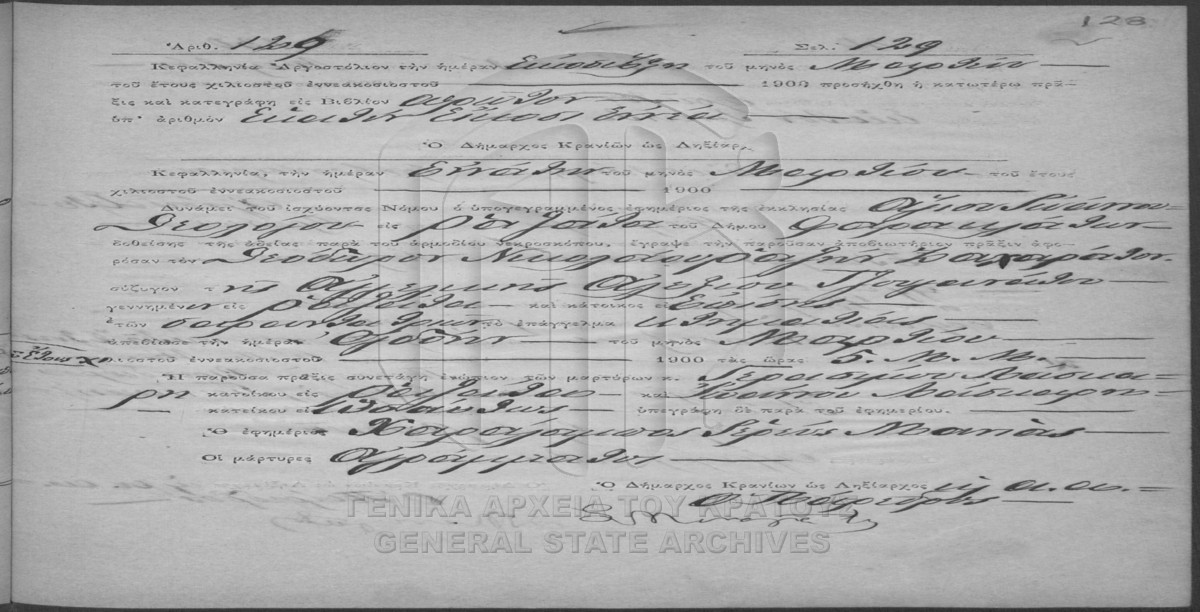 128
Ἀριθ. 129 Σελ. 129
Κεφαλληνία Ἀργοστόλιον τὴν ἡμέραν Εἰκοσιέξη τοῦ μηνὸς Μαρτίου
τοῦ ἔτους χιλιοστοῦ ἐννεακοσιοστοῦ 1900 προσήχθη ἡ κατωτέρω πρᾶ-
ξις καὶ κατεγράφη εἰς Βιβλίον πρῶτον
ὑπ' ἀριθμὸν Ἑκατὸν Εἴκοσι Ἐννέα
Ὁ Δήμαρχος Κρανίων ὡς Ληξίαρ.
Κεφαλληνία, τὴν ἡμέραν Ἐνάτην τοῦ μηνὸς Μαρτίου τοῦ ἔτους
χιλιοστοῦ ἐννεακοσιοστοῦ 1900
Δυνάμει τοῦ ἰσχύοντος Νόμου ὁ ὑπογεγραμμένος ἐφημέριος τῆς ἐκκλησίας Ἁγίου Ἰωάννου
Θεολόγου εἰς τοῦ Δήμου
δοθείσης τῆς ἀδείας παρὰ τοῦ ἁρμοδίου νεκροσκόπου, ἔγραψε τὴν παροῦσαν ἀποβιωτήριον πρᾶξιν ἀφο-
ρῶσαν τὸν Θεόδωρον Νικολάου
σύζυγον τῆς Ἀγγελικῆς Ἀλεξίου
γεννημένον εἰς καὶ κάτοικος εἰς
ἐτῶν τὸ ἐπάγγελμα κτηματίας
ἀπεβίωσε τὴν ἡμέραν Ὀγδόην τοῦ μηνὸς Μαρτίου
τοῦ ἔτους χι
λιοστοῦ ἐννεακοσιοστοῦ 1900 τὰς ὥρας 5. Μ. Μ.
Ἡ παροῦσα πρᾶξις συνετάγη ἐνώπιον τῶν μαρτύρων κ. Γερασίμου Λάσκα-
ρη κατοίκου εἰς καὶ Ἰωάννου Λάσκαρη
κατοίκου εἰς ὡσαύτως ὑπεγράφη δὲ παρὰ τοῦ ἐφημερίου.
Ὁ ἐφημέριος Χαράλαμπος Ἱερεὺς
Οἱ μάρτυρες Ἀγράμματοι
Ὁ Δήμαρχος Κρανίων ὡς Ληξίαρχος κ. α. α.
Ὁ Πάρεδρος
ΓΕΝΙΚΑ ΑΡΧΕΙΑ ΤΟΥ ΚΡΑΤΟΥΣ
GENERAL STATE ARCHIVES